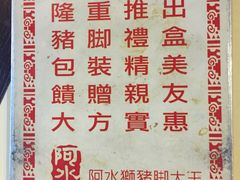 隆重推出
豬脚禮盒
包裝精美
饋贈親友
大方實惠
阿水
阿水獅豬脚大王